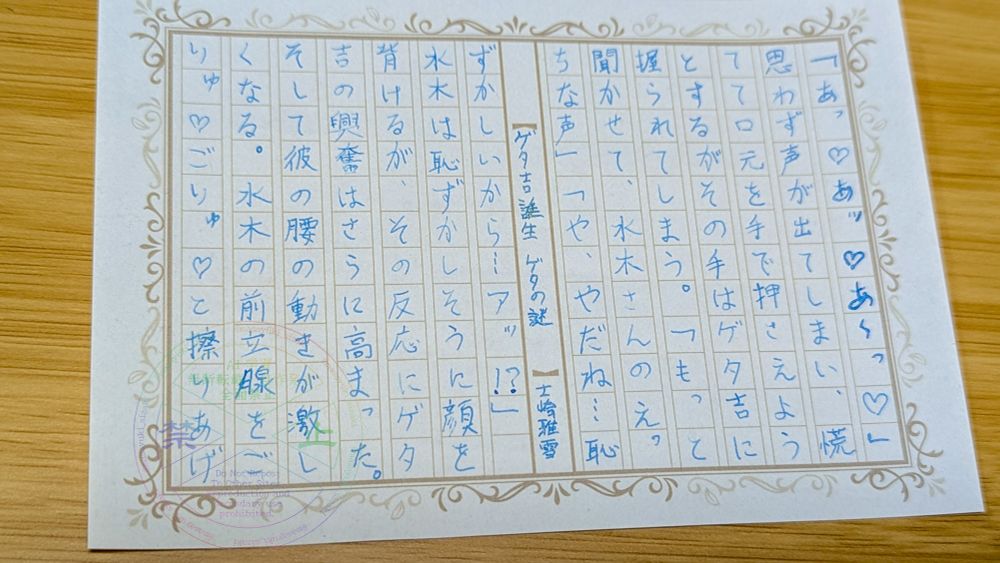 「あっ♡あッ♡あ〜っ♡」
思わず声が出てしまい、慌
てて口元を手で押さえよう
とするがその手はゲタ吉に
握られてしまう。「もっと
聞かせて、水木さんのえっ
ちな声」「や、やだね…恥
【ゲタ吉誕生 ゲタの謎】
士崎雅雪
ずかしいから…アッ!?」
水木は恥ずかしそうに顔を
背けるが、その反応にゲタ
吉の興奮はさらに高まった。
そして彼の腰の動きが激し
くなる。水木の前立腺をご
りゅ♡ごりゅ♡と擦りあげ
禁止
Do Not Repost
prohibited.